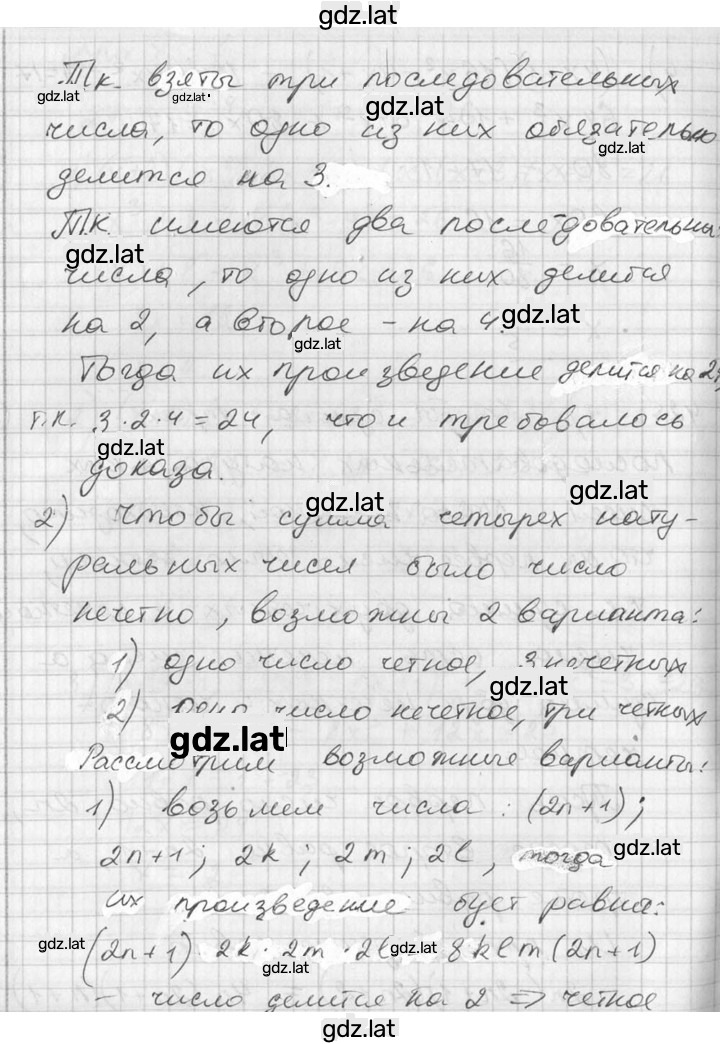 gdz.lat
Т.к. взяты три последовательных
gdz.lat gdz.lat gdz.lat
числа, то одно из них обязательно
gdz.lat
делится на 3.
Т.к. имеются два последовательны
gdz.lat
числа, то одно из них делится
на 2, а второе - на 4.
gdz.lat gdz.lat
Тогда их произведение делится на 2
т.к. 3·2·4=24, что и требовалось
gdz.lat
доказа.
gdz.lat gdz.lat
2) Чтобы сумма четырех нату-
ральных чисел было число
нечетно, возможны 2 варианта:
1) одно число четное, 3 нечетных
gdz.lat
2) одно число нечетное, три четных
gdz.lat
Рассмотрим возможные варианты:
1) возьмем числа: (2n+1);
2n+1; 2k; 2m; 2l, тогда
gdz.lat
их произведение бует равна:
gdz.lat gdz.lat gdz.lat
(2n+1)·2k·2m·2l 8klm(2n+1)
- число делится на 2 ⇒ четное
gdz.lat